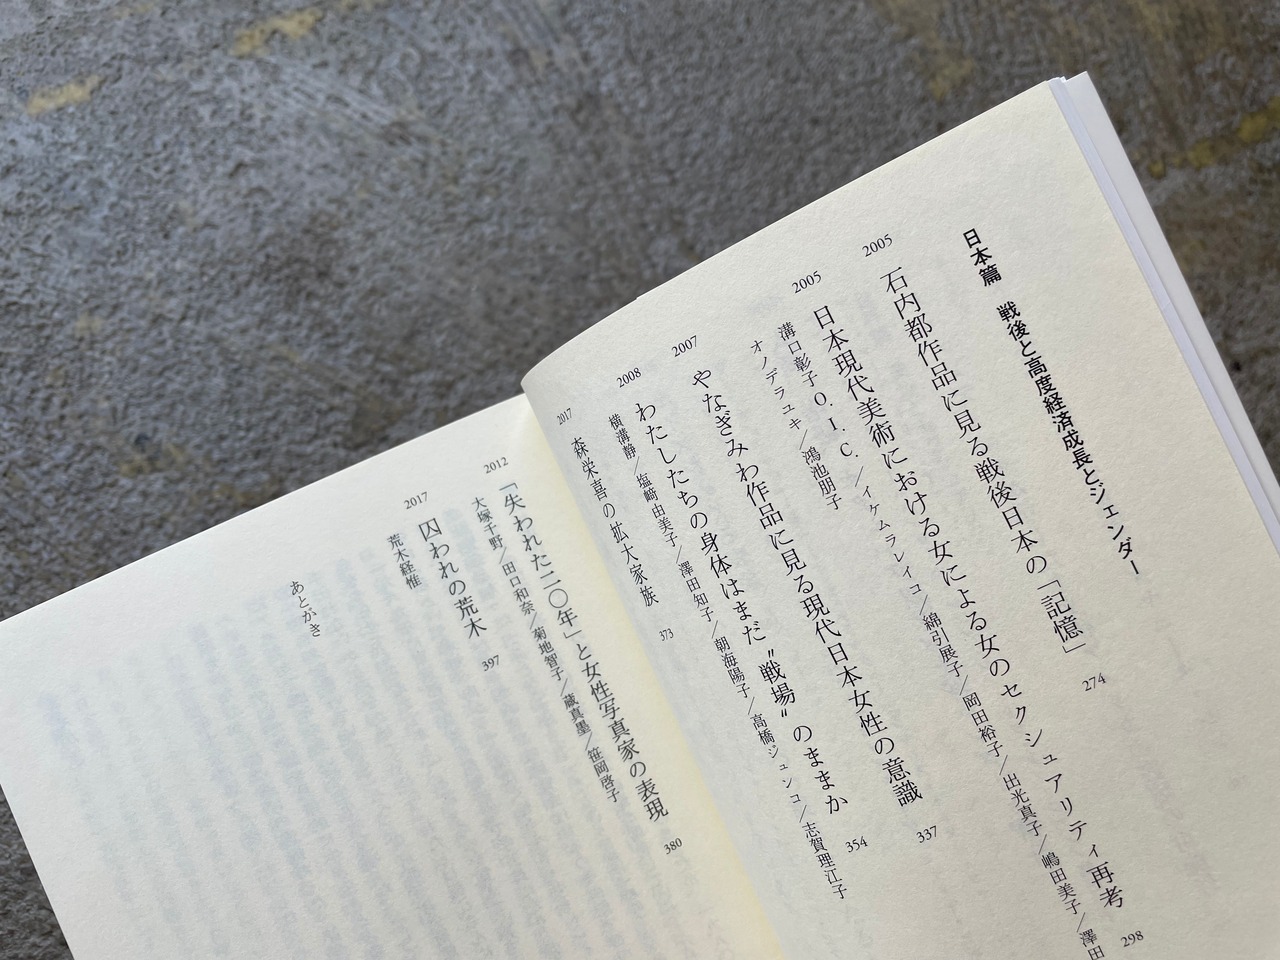 日本篇　戦後と高度経済成長とジェンダー
2005
石内都作品に見る戦後日本の「記憶」 274
2005
日本現代美術における女による女のセクシュアリティ再考 298
溝口彰子 O. I. C.／イケムラレイコ／綿引展子／岡田裕子／出光真子／嶋田美子／澤田
オノデラユキ／鴻池朋子
2007
やなぎみわ作品に見る現代日本女性の意識 337
2008
わたしたちの身体はまだ〝戦場〟のままか 354
横溝静／塩﨑由美子／澤田知子／朝海陽子／高橋ジュンコ／志賀理江子
2017
森栄喜の拡大家族 373
2012
「失われた二〇年」と女性写真家の表現 380
大塚千野／田口和奈／菊地智子／蔵真墨／笹岡啓子
2017
囚われの荒木 397
荒木経惟
あとがき